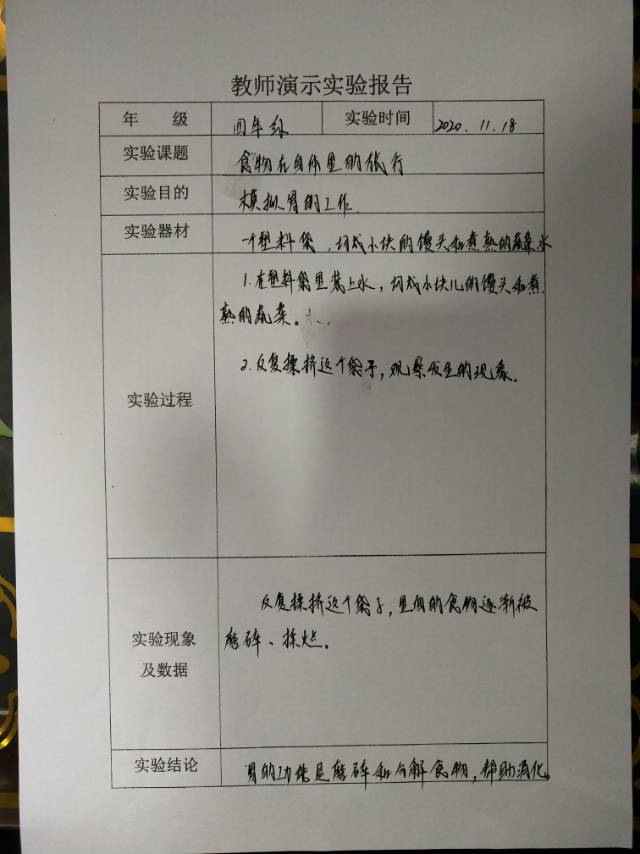 教师演示实验报告
年 级 四年级 实验时间 2020.11.18
实验课题 食物在身体里的旅行
实验目的 模拟胃的工作
实验器材 一个塑料袋、切成小块的馒头和煮熟的蔬菜水
1.在塑料袋里装上水，切成小块儿的馒头和煮
熟的蔬菜。
2.反复揉挤这个袋子，观察发生的现象。
实验过程
反复揉挤这个袋子，里面的食物逐渐被
磨碎、揉烂。
实验现象
及数据
实验结论 胃的功能是磨碎和分解食物，帮助消化。